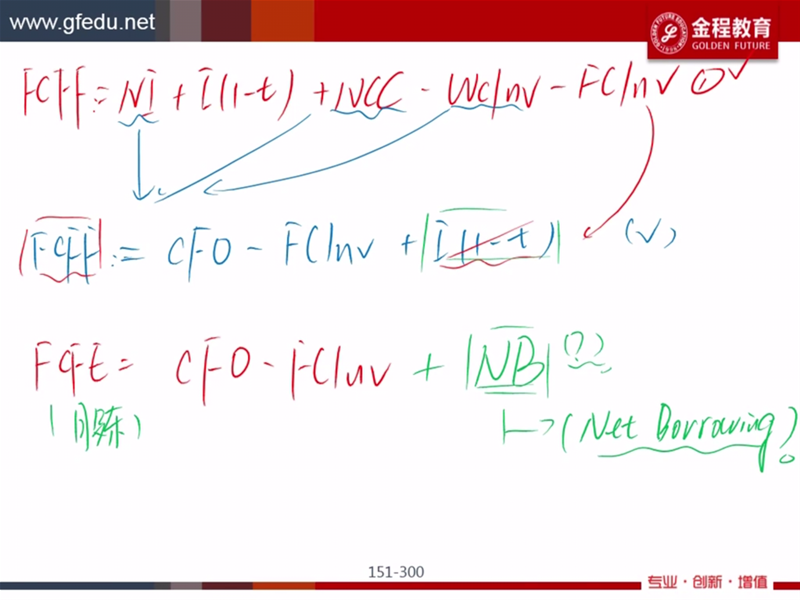 www.gfedu.net
金程教育
GOLDEN FUTURE
FCFF = NI + I(1-t) + NCC - WCInv - FCInv ① √
FCFF = CFO - FCInv + I(1-t) (√)
FCFE = CFO - FCInv + NB (?)
→ (Net Borrowing)
151-300
专业·创新·增值